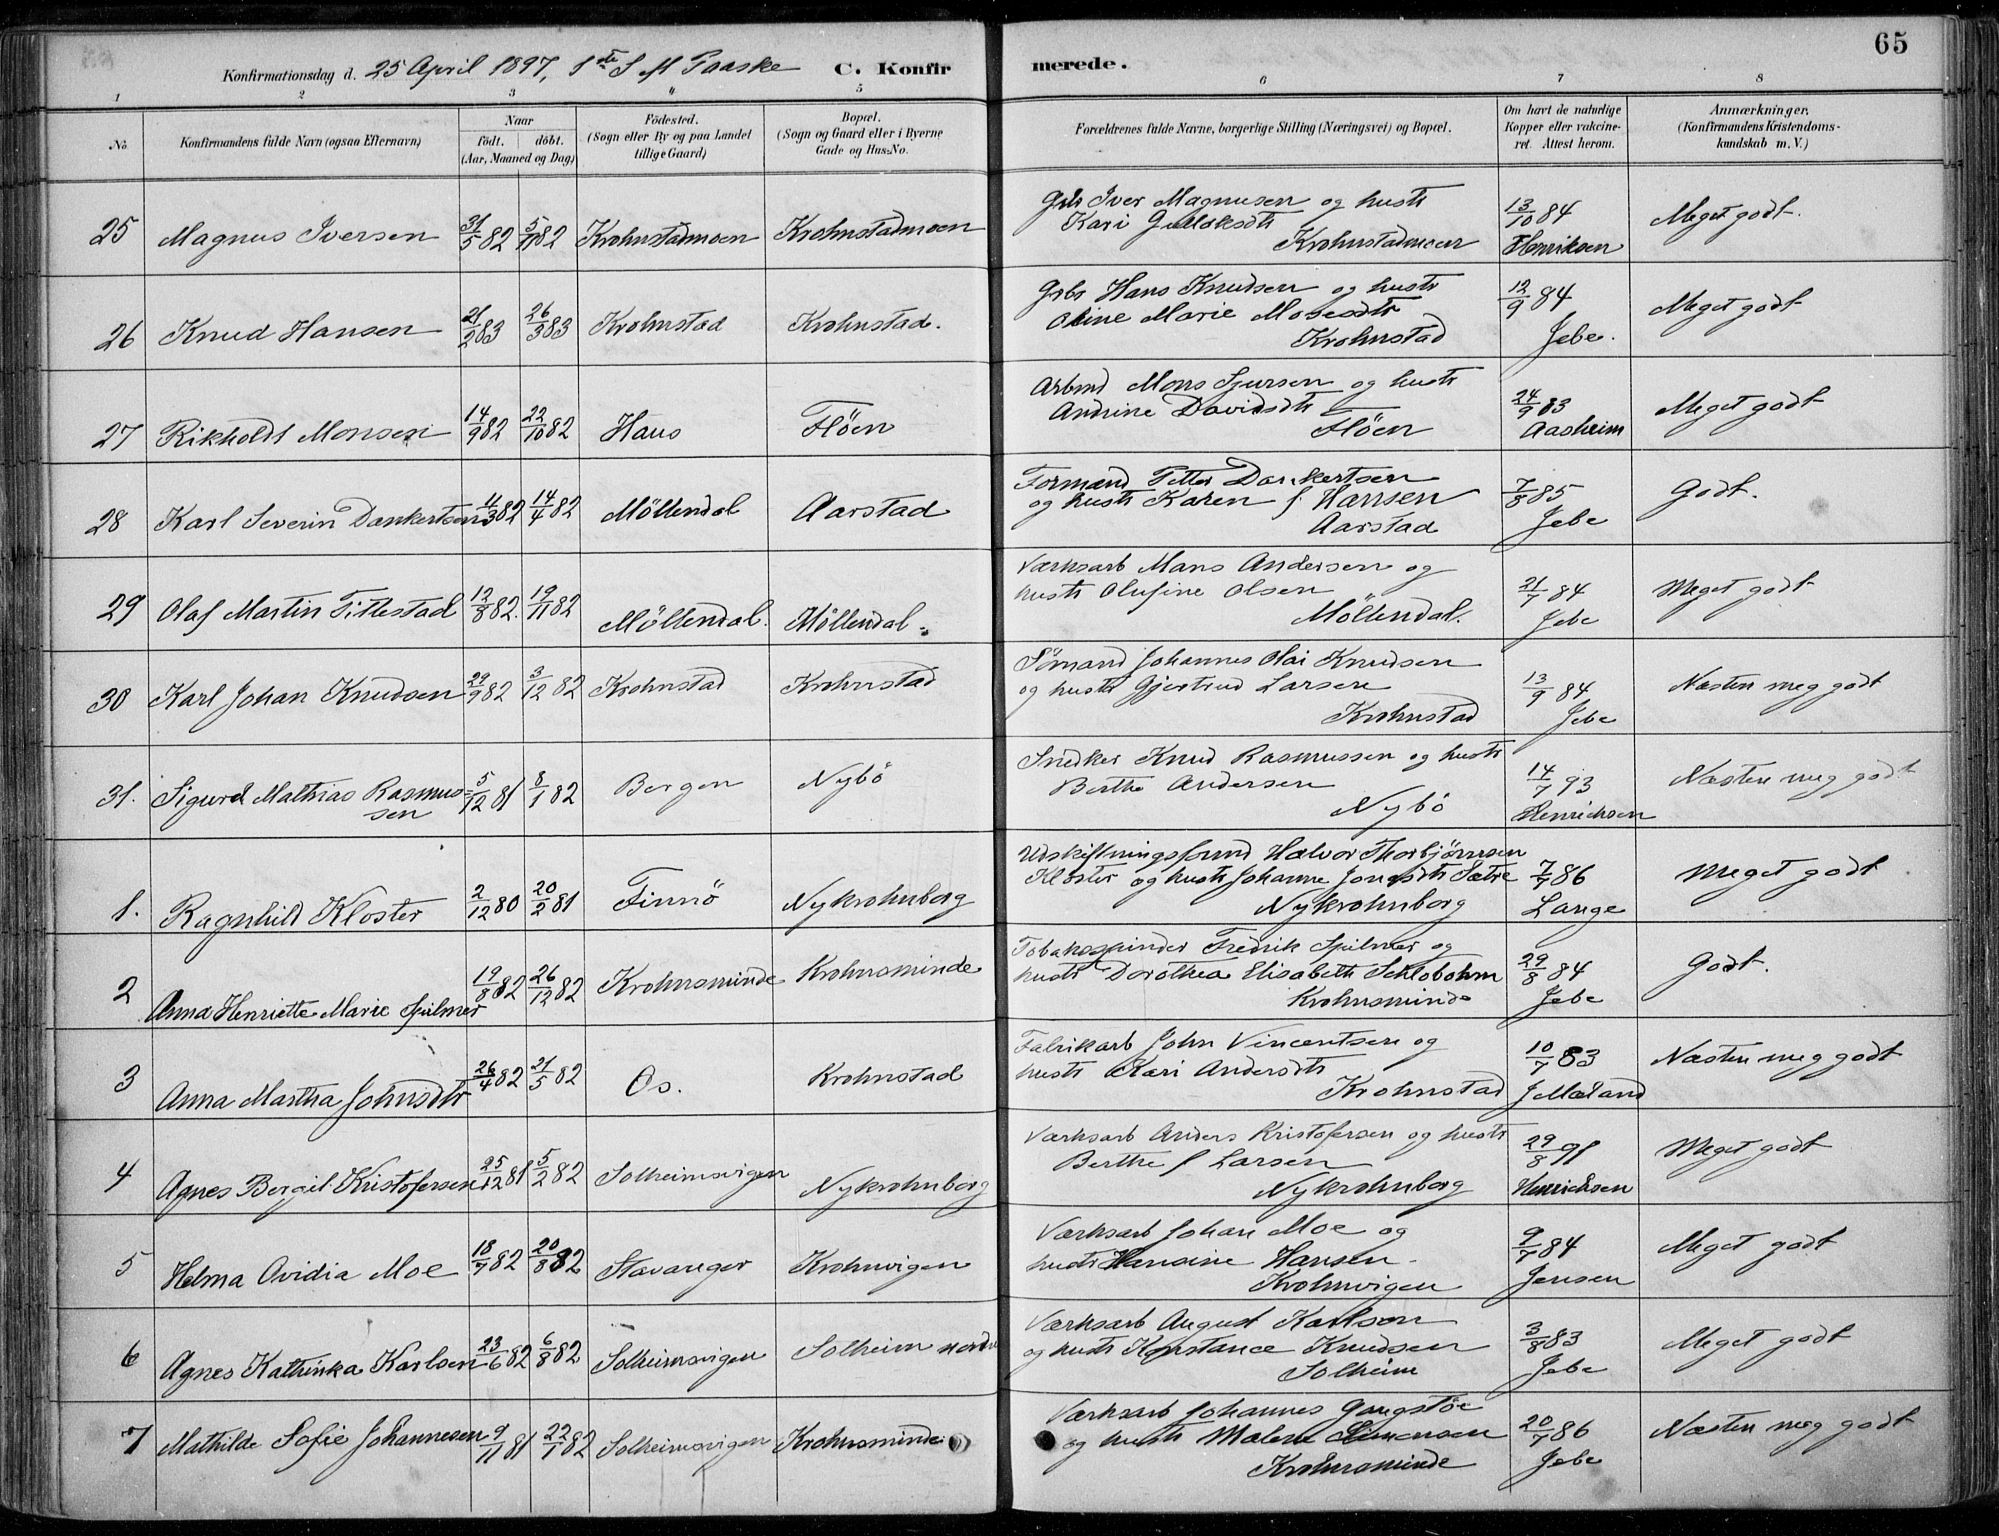 65
Konfirmationsdag d. 25 April 1897, 1ste S M Paaske C. Konfir merede.
1 2 3 4 5 6 7 8
No Konfirmandens fulde Navn (ogsaa Efternavn) Naar födt. döbt. (Aar, Maaned og Dag) Födested. (Sogn eller By og paa Landet tillige Gaard) Bopæl. (Sogn og Gaard eller i Byerne Gade og Hus-No. Forældrenes fulde Navne, borgerlige Stilling (Næringsvei) og Bopæl. Om havt de naturlige Kopper eller vakcineret. Attest herom. Anmærkninger. (Konfirmandens Kristendomskundskab m.V.)
25 Magnus Iversen 31/5 82 5/11 82 Krohnstadmoen Krohnstadmoen Gbr Iver Magnusen og hustr 13/10 84 Meget godt.
Kari
Krohnstadmoen Henriksen
26 Knud Hansen 21/2 83 26/3 83 Krohnstad Krohnstad. Gbr Hans Knudsen og hustr 12/9 84 Meget godt
Oline Marie Mosesdtr
Krohnstad Jebe.
27 Rikholdt Monsen 14/9 82 22/10 82 Haus Flöen Arbmd Mons Sjursen og hustr 24/9 83 Meget godt
Andrine Davidsdtr
Flöen Aasheim
28 Karl Severin Dankertsen 11/3 82 14/4 82 Möllendal Aarstad Formand Petter Dankertsen 7/8 85 Godt.
og hustr Karen f Hansen
Aarstad Jebe
29 Olaf Martin Tittestad 12/8 82. 19/11 82 Möllendal. Möllendal. Værksarb Mans Andersen og 21/7 84 Meget godt
hustr Olufine Olsen
Möllendal. Jebe
30 Karl Johan Knudsen 29/9 82 3/12 82 Krohnstad Krohnstad Sömand Johannes Olai Knudsen 13/9 84 Næsten meg godt
og hustr Gjertrud Larsen
Krohnstad Jebe
31. Sigurd Mathias Rasmus- 5/12 81 8/1 82 Bergen Nybö Snedker Knud Rasmussen og hustr 14/7 93 Næsten meg godt
sen Berthe Andersen
Nybö Henrichsen
1. Ragnhild Kloster 2/12 80 20/2 81 Finnö Nykrohnborg Udskiftningsformd Halvor Thorbjörnsen 7/7 86 Meget godt
Kloster og hustr Johanne Jonasdtr Sætre
Nykrohnborg Lange
2 Anna Henriette Marie Spilmer 19/8 82 26/12 82 Krohnsminde Krohnsminde Tobakspinder Fredrik Spilmer og 29/8 84 Godt.
hustr Dorothea Elisabeth Schlobohm
Krohnsminde Jebe
3 Anna Martha Johnsdtr 26/4 82 21/5 82 Os. Krohnstad Fabrikarb John Vincentsen og 10/7 83 Næsten meg godt
hustr Kari Andersdtr
Krohnstad J Mæland
4 Agnes Bergit Kristofersen 25/12 81 5/2 82 Solheimsvigen Nykrohnborg Værksarb Anders Kristofersen og hustr 29/8 91 Meget godt
Berthe f Larsen
Nykrohnborg Henrichsen
5 Helma Ovidia Moe 18/7 82 20/8 82 Stavanger Krohnvigen Værksarb Johan Moe og 9/7 84 Meget godt
hustr Hansine Hansen
Krohnvigen Jensen
6 Agnes Kathinka Karlsen 23/6 82 6/8 82 Solheimsvigen Solheim nordre Værksarb August Karlson 3/8 83 Meget godt
og hustr Konstance Knudsen
Solheim Jebe
7 Mathilde Sofie Johannesen 9/11 81 22/1 82 Solheimsvigen Krohnsminde Værksarb Johannes Gangstöe 20/7 86 Næsten meg godt
og hustr Malene Simonsen
Krohnsminde Jebe